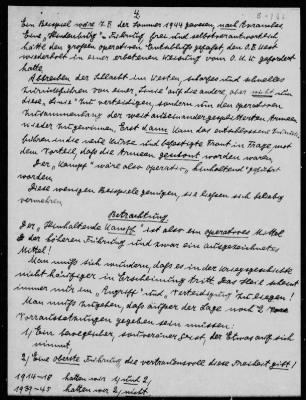 4
B-746
Ein Beispiel wäre z.B. der Sommer 1944 gewesen nach Avranches
Eine „Hindenburg" – Führung frei und selbstverantwortlich
hätte den großen operativen Entschluß gefaßt, den O.B. West
wiederholt in einer erbetenen Weisung vom O.K.W. gefordert
hatte
Abbrechen der Schlacht im Westen, sofortiges und schnelles
Zurückführen von einer Linie auf die andere, aber nicht um
diese Linie zu verteidigen, sondern um den operativen
Zusammenhang der weit auseinandergesplitterten Armeen
wieder zu gewinnen. Erst dann kam das entschlossene Zurück-
führen in die neue kurze und befestigte Front in Frage mit
dem Vorteil, daß die Armeen geschont worden waren.
Der „Kampf" wäre also operativ hinhaltend geführt
worden
Diese wenigen Beispiele genügen, sie ließen sich beliebig
vermehren
Betrachtung
Der „Hinhaltende Kampf" ist also ein operatives Mittel
der höheren Führung und zwar ein ausgezeichnetes
Mittel!
Man muß sich wundern, daß es in der Kriegsgeschichte
nicht häufiger in Erscheinung tritt. Das Heil scheint
immer nur im „Angriff" und „Verteidigung" zu liegen!
Man muß zugeben, daß außer der Lage noch 2
Voraussetzungen gegeben sein müssen:
1) Ein beweglicher, souveräner Geist, der Etwas auf sich
nimmt
2) Eine oberste Führung die vertrauensvoll diese Freiheit gibt!
1914–18 hatten wir 1) und 2)
1939–45 hatten wir 2) nicht